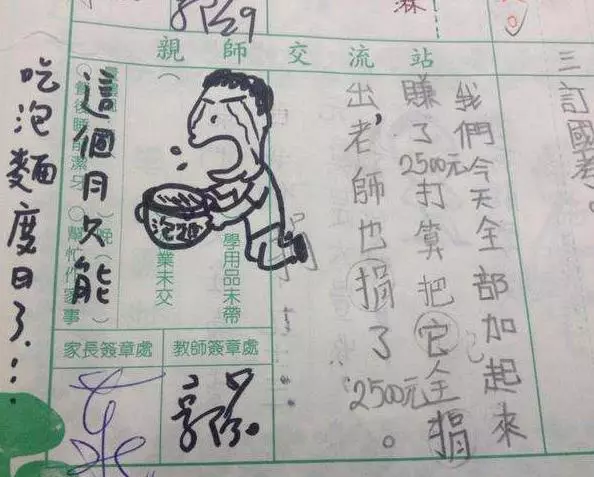 親師交流站
三訂國考。
我們今天全部加起來
賺了2500元打算把它全捐
出，老師也捐了2500元。
學用品未帶
業未交
泡麵
這個月只能
吃泡麵度日了...
餐後睡前潔牙
幫忙作家事
教師簽章處
家長簽章處